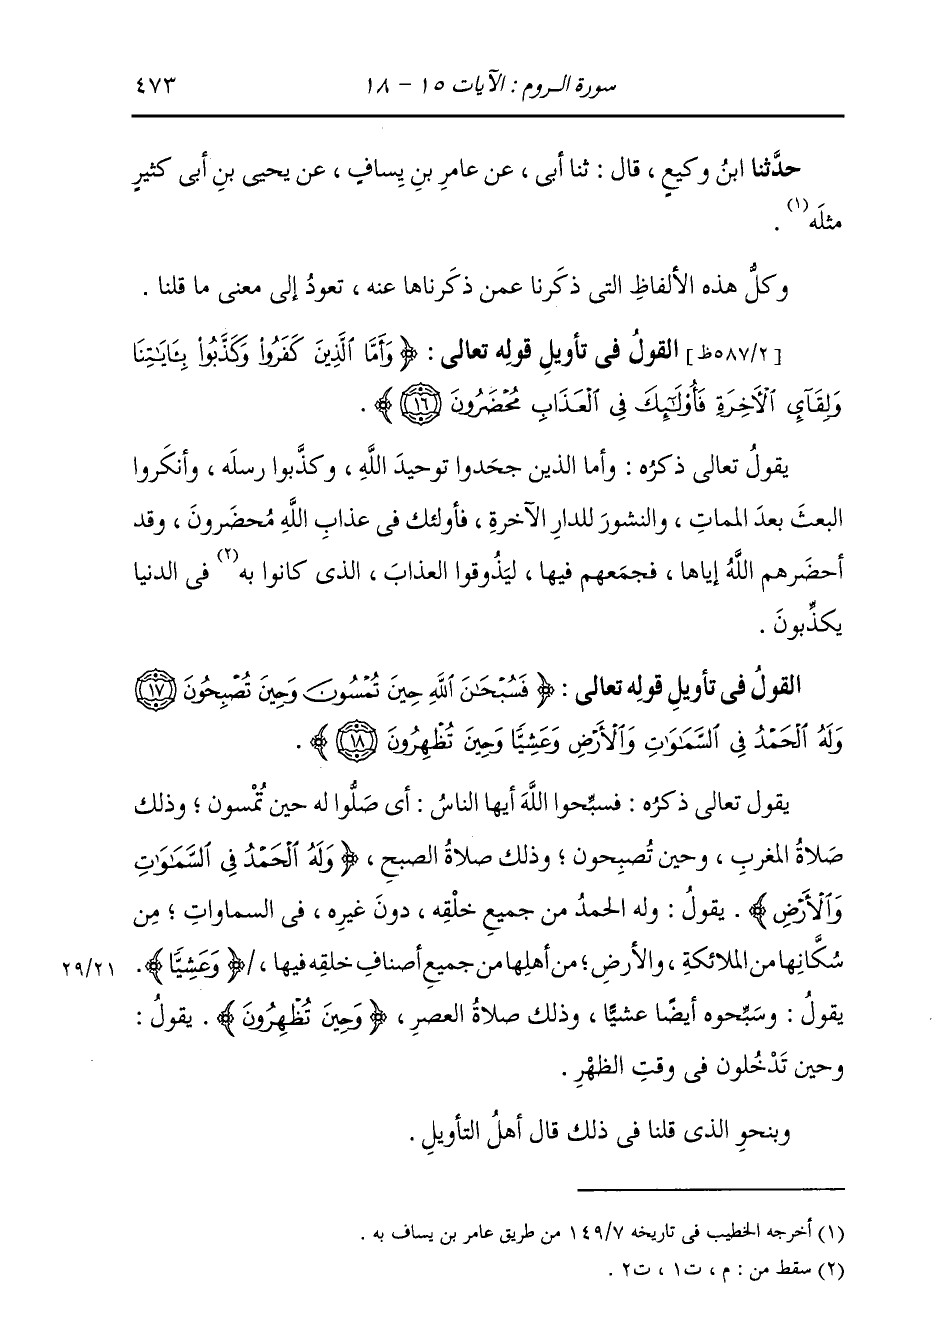 سورة الروم : الآيات ١٥ - ١٨ ٤٧٣
حدَّثنا ابنُ وكيعٍ ، قال : ثنا أبى ، عن عامرِ بنِ يِسافٍ ، عن يحيى بنِ أبى كثيرٍ
مثلَه(١) .
وكلُّ هذه الألفاظِ التى ذكَرنا عمن ذكَرناها عنه ، تعودُ إلى معنى ما قلنا .
[٥٨٧/٢ظ] القولُ فى تأويلِ قولِه تعالى : ﴿ وَأَمَّا ٱلَّذِينَ كَفَرُوا۟ وَكَذَّبُوا۟ بِـَٔايَـٰتِنَا
وَلِقَآىِٕ ٱلْأَخِرَةِ فَأُو۟لَـٰٓئِكَ فِى ٱلْعَذَابِ مُحْضَرُونَ (١٦) ﴾ .
يقولُ تعالى ذكرُه : وأما الذين جحَدوا توحيدَ اللَّهِ ، وكذَّبوا رسلَه ، وأنكَروا
البعثَ بعدَ المماتِ ، والنشورَ للدارِ الآخرةِ ، فأولئك فى عذابِ اللَّهِ مُحضَرونَ ، وقد
أحضَرهم اللَّهُ إياها ، فجمَعهم فيها ، ليَذُوقوا العذابَ ، الذى كانوا به(٢) فى الدنيا
يكذِّبونَ .
القولُ فى تأويلِ قولِه تعالى : ﴿ فَسُبْحَـٰنَ ٱللَّهِ حِينَ تُمْسُونَ وَحِينَ تُصْبِحُونَ (١٧)
وَلَهُ ٱلْحَمْدُ فِى ٱلسَّمَـٰوَٰتِ وَٱلْأَرْضِ وَعَشِيًّا وَحِينَ تُظْهِرُونَ (١٨) ﴾ .
يقول تعالى ذكرُه : فسبِّحوا اللَّهَ أيها الناسُ : أى صَلُّوا له حين تُمْسون ؛ وذلك
صَلاةُ المغربِ ، وحين تُصبِحون ؛ وذلك صلاةُ الصبحِ ، ﴿ وَلَهُ ٱلْحَمْدُ فِى ٱلسَّمَـٰوَٰتِ
وَٱلْأَرْضِ ﴾ . يقولُ : وله الحمدُ من جميعِ خلْقِه ، دونَ غيرِه ، فى السماواتِ ؛ مِن
سُكَّانِها من الملائكةِ ، والأرضِ ؛ من أهلِها من جميعِ أصنافِ خلقِه فيها ، /﴿ وَعَشِيًّا ﴾ . ٢٩/٢١
يقولُ : وسَبِّحوه أيضًا عشيًّا ، وذلك صلاةُ العصرِ ، ﴿ وَحِينَ تُظْهِرُونَ ﴾ . يقولُ :
وحين تَدْخُلون فى وقتِ الظهْرِ .
وبنحوِ الذى قلنا فى ذلك قال أهلُ التأويلِ .
(١) أخرجه الخطيب فى تاريخه ١٤٩/٧ من طريق عامر بن يساف به .
(٢) سقط من : م ، ت١ ، ت٢ .